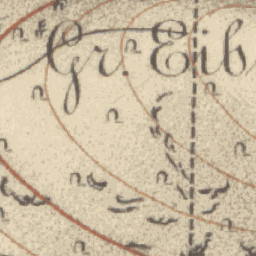 Gr. Eib